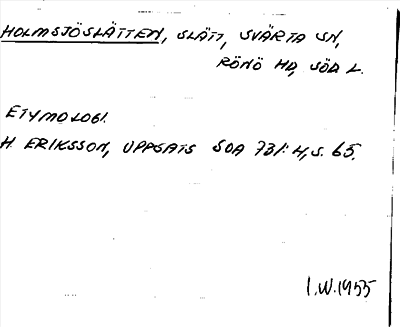 HOLMSJÖSLÄTTEN, SLÄTT, SVÄRTA SN,
RÖNÖ HD, SÖD L.
ETYMOLOGI.
H. ERIKSSON, UPPSATS SOA 731:4, S. 65.
I.W. 1955